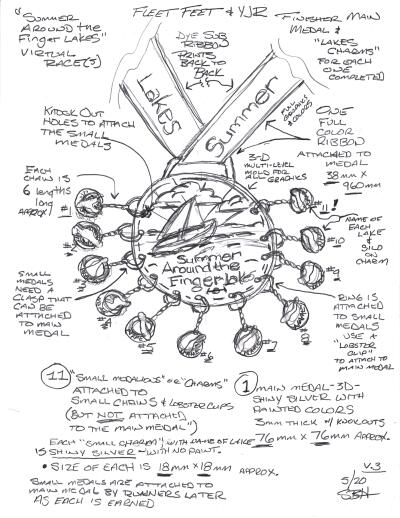 "Summer
Around the
Finger Lakes"
Virtual
Race(s)
Fleet Feet & YJR
Dye Sub
Ribbon
Prints
Back to
Back
Finisher Main
Medal &
"Lakes
Charms"
for each
one
completed
Lakes
Summer
Full
Graphics
& Colors
Knock Out
holes to attach
the small
medals
One
Full
Color
Ribbon
Attached to
Medal
38mm x
960mm
3-D
Multi-level
Mold for
Graphics
Each
chain is
6 lengths
long
approx
#1
#11
#10
#9
#8
#7
#6
Name of
Each Lake
& Silo
on
Charm
Summer
Around the
Finger Lake
Small
medals
need a
clasp that
can be
attached
to main
medal
Ring is
attached
to small
medals
use a
"Lobster
Clip"
to attach to
main medal
11 "Small Medallions" or "Charms"
attached to
small chains & lobster clips
(But not attached
to the main medal")
Each "small charm" with name of lake
is shiny silver - with no paint.
• Size of each is 18mm x 18mm approx.
Small medals are attached to
main medal by runners later
as each is earned
1 main medal - 3D -
shiny silver with
painted colors
3mm thick w/ knockouts
76mm x 76mm approx.
V.3
5/20